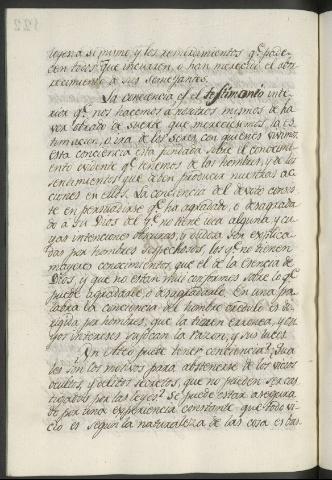 tegersa si mismo, y los remordimientos q.e pade-
cen todos que incurren, o han merecido el abor-
recimiento de sus semejantes.
La conciencia es el testimonio inte-
rior q.e nos hacemos a nosotros mismos de ha-
ver obrado de suerte que merezcamos la es-
timacion, o ira de los seres con quienes vivimos
esta conciencia està fundada sobre el conocimi-
ento evidente q.e tenemos de los hombres, y de los
sentimientos que deben producir nuestras ac-
ciones en ellos. La conciencia del devoto consis-
te en persuadirse q.e ha agradado, o desagrada-
do a su Dios del q.e no tiene idea alguna y cu-
yas intenciones obscuras, y son explica-
das por hombres sospechosos, los q.e no tienen
mayores conocimientos que el de la esencia de
Dios, y que no estan muy conformes sobre lo q.e
puede agradarle, o desagradarle. En una pa-
labra la conciencia del hombre credulo es di-
rigida por hombres, que la tienen erronea, y cu-
yos intereses sufocan la razon, y sus luces.
Un Ateo puede tener conciencia? Qua-
les son los motivos para abstenerse de los vicios
ocultos, y delitos secretos, que no pueden ser cas-
tigados por las leyes? Se puede estar asegura-
do por una experiencia constante que todo vi-
cio es segun la naturaleza de las cosas es cas-